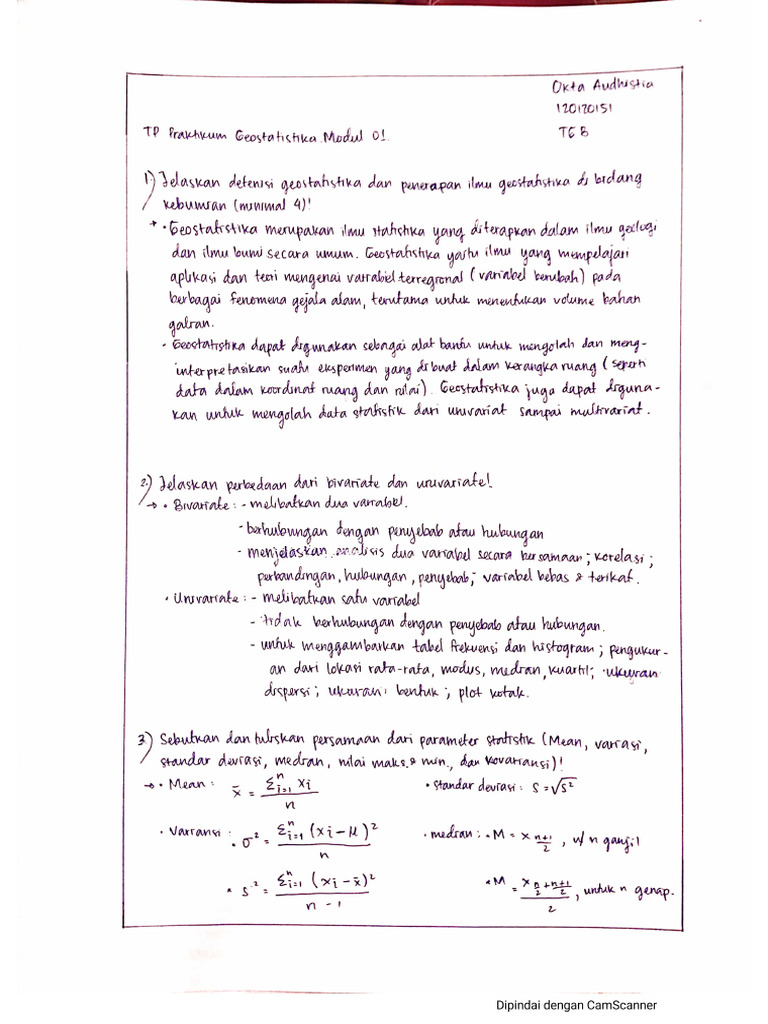 Okta Audhistia
120120151
TP Praktikum Geostatistika Modul 01.
TG B
1.) Jelaskan defenisi geostatistika dan penerapan ilmu geostatistika di bidang
kebumian (minimal 4)!
→ • Geostatistika merupakan ilmu statistika yang diterapkan dalam ilmu geologi
dan ilmu bumi secara umum. Geostatistika yaitu ilmu yang mempelajari
aplikasi dan teori mengenai variabel terregional (variabel berubah) pada
berbagai fenomena gejala alam, terutama untuk menentukan volume bahan
galian.
• Geostatistika dapat digunakan sebagai alat bantu untuk mengolah dan meng-
interpretasikan suatu eksperimen yang dibuat dalam kerangka ruang (seperti
data dalam koordinat ruang dan nilai). Geostatistika juga dapat diguna-
kan untuk mengolah data statistik dari univariat sampai multivariat.
2.) Jelaskan perbedaan dari bivariate dan univariate!
→ • Bivariate : - melibatkan dua variabel.
- berhubungan dengan penyebab atau hubungan
- menjelaskan analisis dua variabel secara bersamaan; korelasi;
perbandingan, hubungan, penyebab; variabel bebas & terikat.
• Univariate : - melibatkan satu variabel
- tidak berhubungan dengan penyebab atau hubungan.
- untuk menggambarkan tabel frekuensi dan histogram; pengukur-
an dari lokasi rata-rata, modus, median, kuartil; ukuran
dispersi; ukuran bentuk; plot kotak.
3.) Sebutkan dan tuliskan persamaan dari parameter statistik (Mean, variasi,
standar deviasi, median, nilai maks. & min., dan kovariansi)!
→ • Mean : x̄ = Σⁿᵢ₌₁ xi / n
• standar deviasi : S = √s²
• Variansi : • σ² = Σⁿᵢ₌₁ (xi - μ)² / n
• median : • M = x n+1/2 , u/ n ganjil
• s² = Σⁿᵢ₌₁ (xi - x̄)² / n - 1
• M = x n/2 + n+1/2 / 2 , untuk n genap.
Dipindai dengan CamScanner